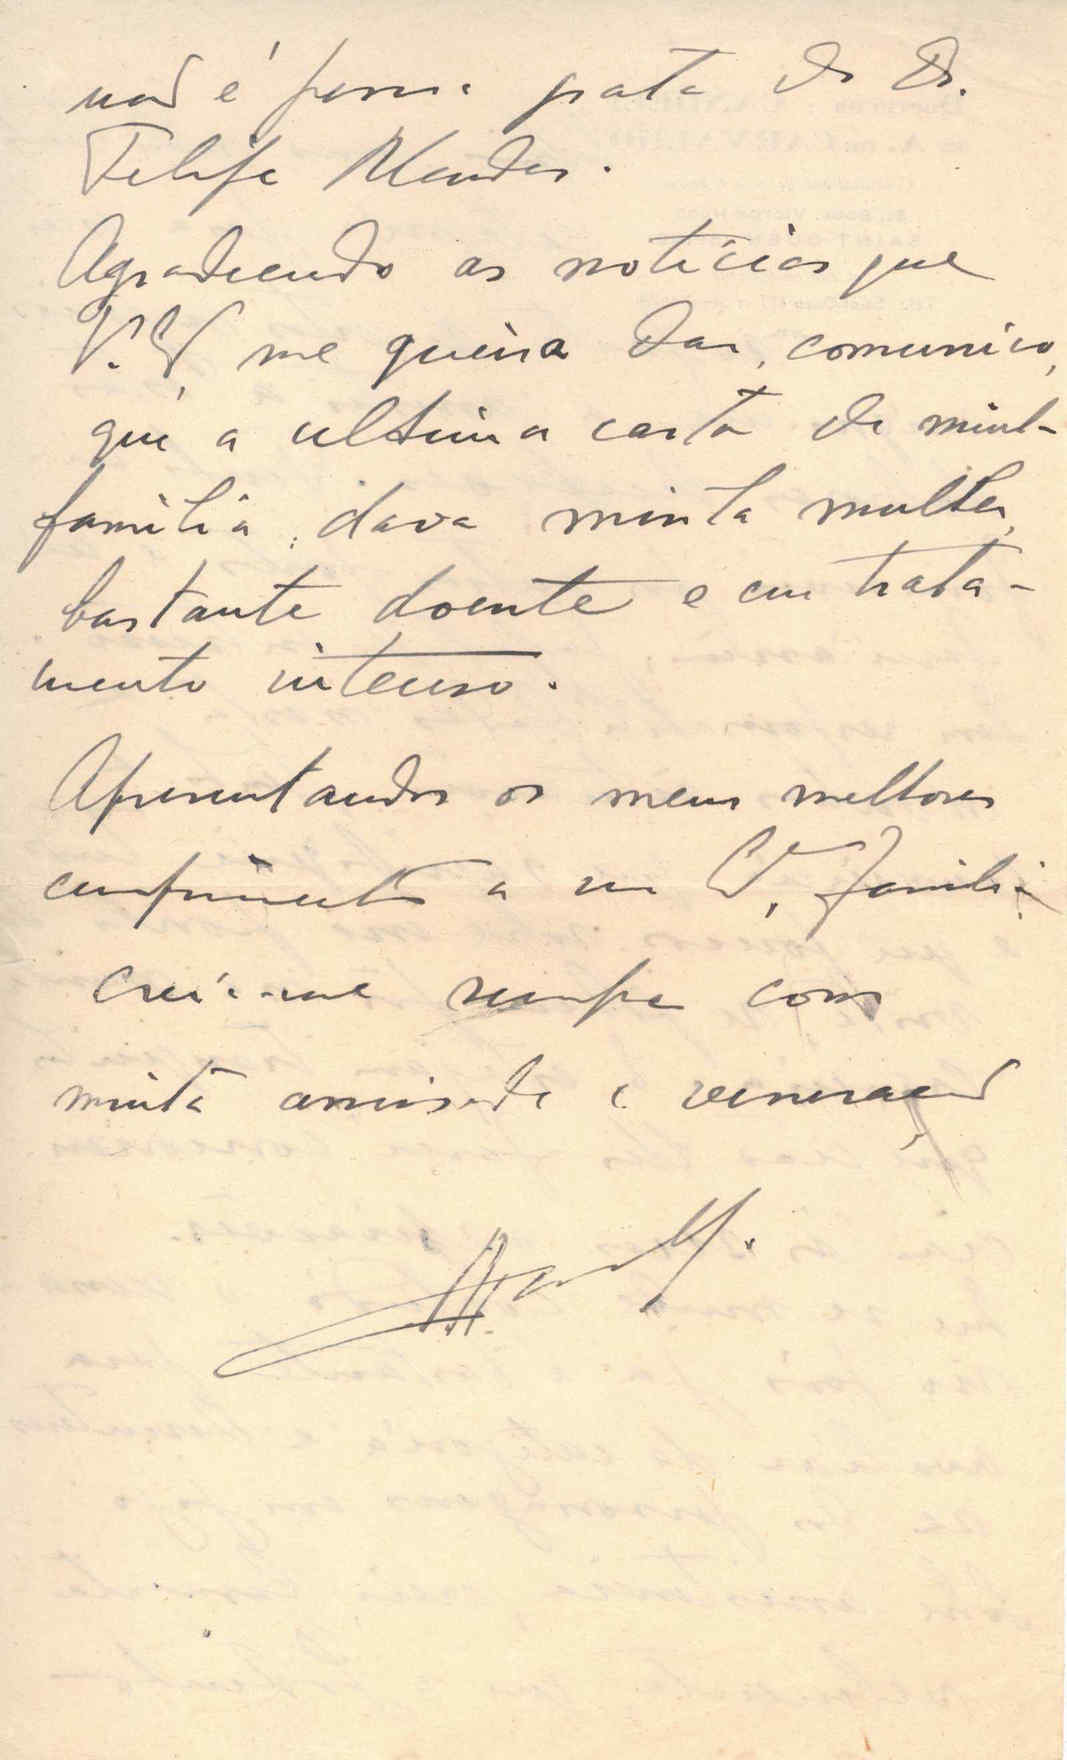 não é persona grata do Dr.
Felipe Mendes.
Agradecendo as notícias que
V. Exª me queira dar, comunico,
que a ultima carta de minha
familia, dava minha mulher,
bastante doente e em trata-
mento intenso.
Apresentando os meus melhores
cumprimentos a sua Exª familia
creia-me sempre com
minha amisade e veneração